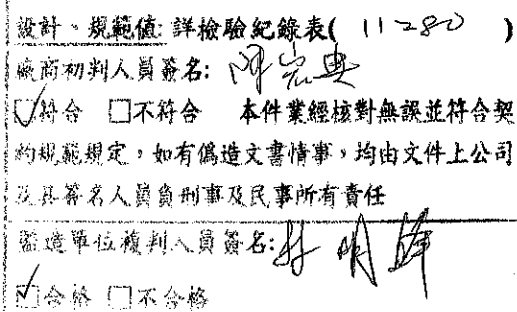 設計、規範值: 詳檢驗紀錄表( 11280 )
廠商初判人員簽名:
☑符合 □不符合 本件業經核對無誤並符合契
約規範規定，如有偽造文書情事，均由文件上公司
及其簽名人員負刑事及民事所有責任
監造單位複判人員簽名: 林明
☑合格 □不合格